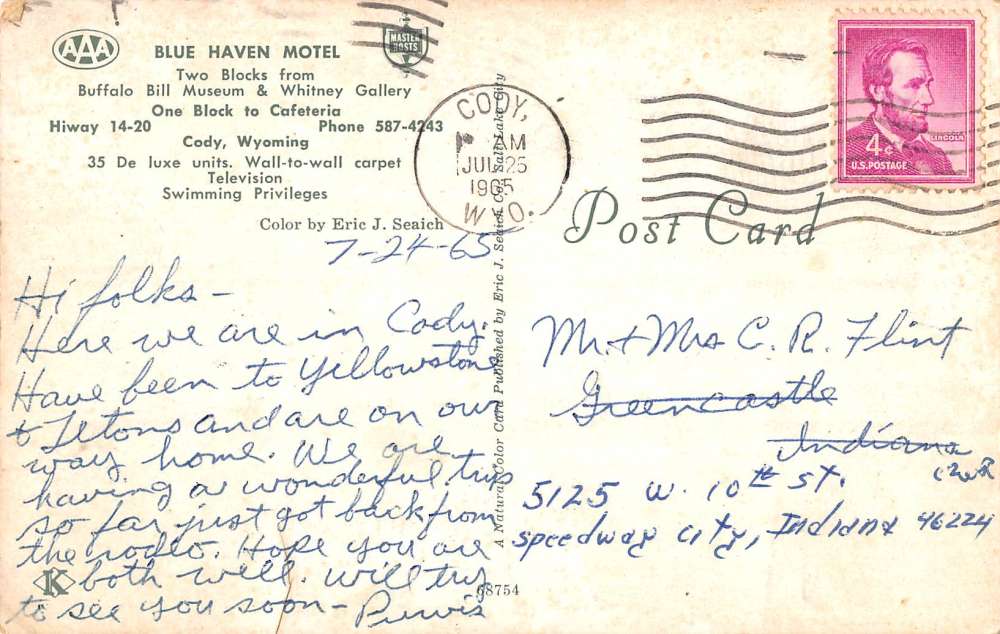 AAA
BLUE HAVEN MOTEL
MASTER HOSTS
Two Blocks from
Buffalo Bill Museum & Whitney Gallery
One Block to Cafeteria
Hiway 14-20 Phone 587-4243
Cody, Wyoming
35 De luxe units. Wall-to-wall carpet
Television
Swimming Privileges
Color by Eric J. Seaich
CODY,
AM
JUL 25
1965
WYO.
LINCOLN
4¢
U.S. POSTAGE
Post Card
A Natural Color Card Published by Eric J. Seaich Co., Salt Lake City
7-24-65
Hi folks -
Here we are in Cody.
Have been to Yellowstone
& Tetons and are on our
way home. We are
having a wonderful trip
so far, just got back from
the rodeo. Hope you are
both well. Will try
to see you soon - Purvis
K
68754
Mr. + Mrs C. R. Flint
Greencastle
Indiana
5125 W. 10th St.
Speedway City, Indiana 46224